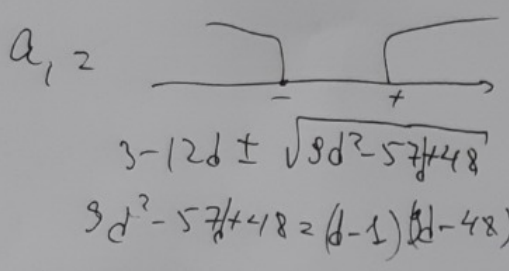 a₁ =
- +
3-12d ± √9d²-57d+48
9d²-57d+48 = (d-1)(9d-48)